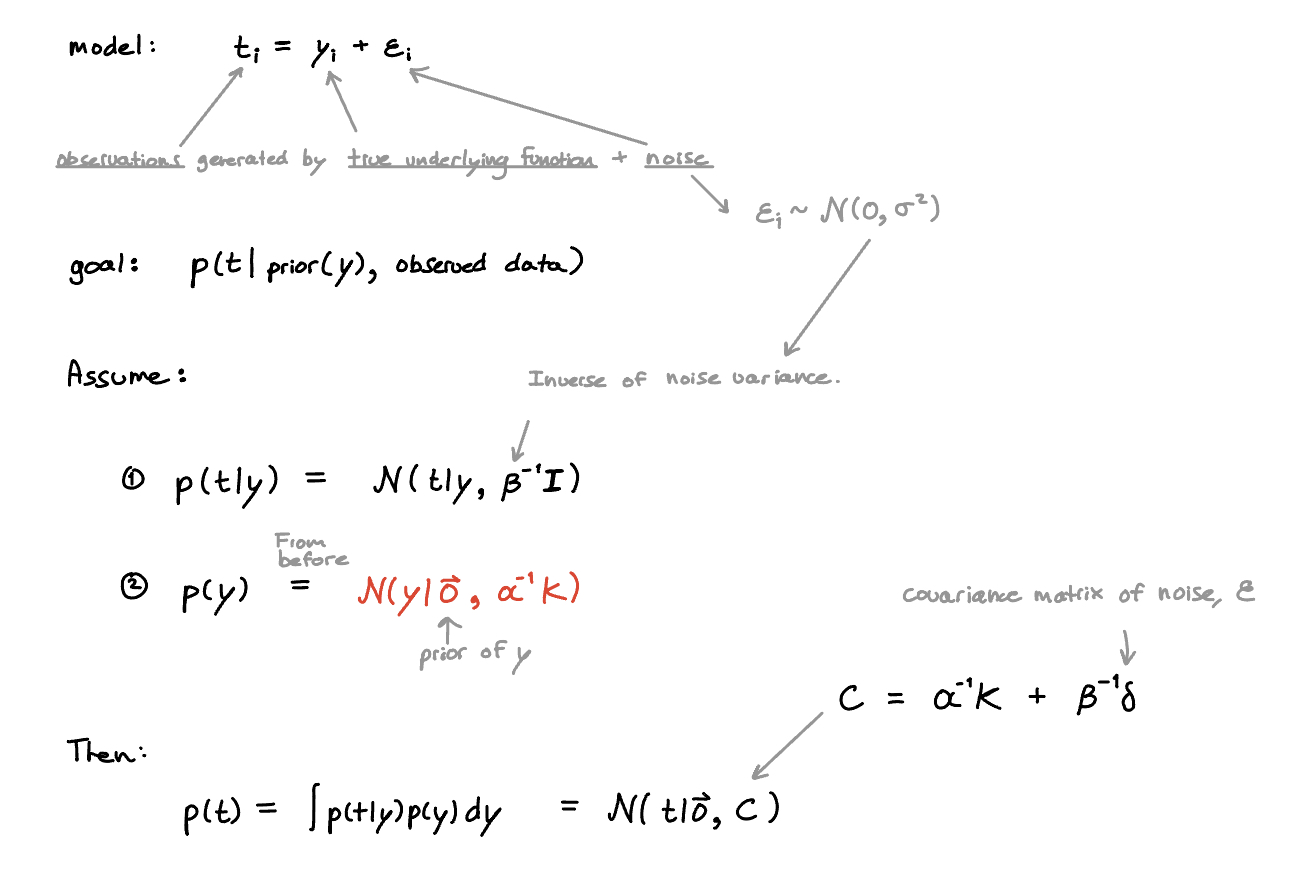 model: tᵢ = yᵢ + εᵢ
observations generated by true underlying function + noise
εᵢ ~ N(0, σ²)
goal: p(t | prior(y), observed data)
Assume:
Inverse of noise variance.
① p(t|y) = N(t|y, β⁻¹I)
From before
② p(y) = N(y|0⃗, α⁻¹K)
prior of y
covariance matrix of noise, ε
C = α⁻¹K + β⁻¹δ
Then:
p(t) = ∫p(t|y)p(y)dy = N(t|0⃗, C)